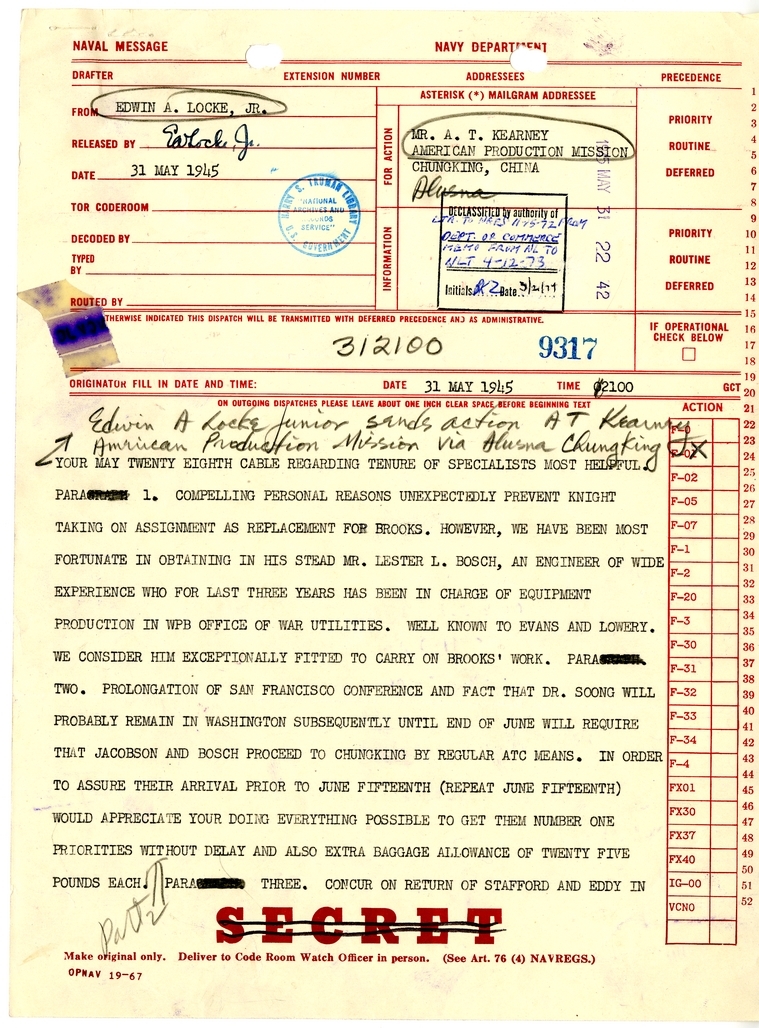 NAVAL MESSAGE NAVY DEPARTMENT
DRAFTER EXTENSION NUMBER ADDRESSEES PRECEDENCE
FROM EDWIN A. LOCKE, JR.
RELEASED BY EaLocke, Jr.
DATE 31 MAY 1945
TOR CODEROOM
DECODED BY
TYPED
BY
ROUTED BY
HARRY S. TRUMAN LIBRARY
"NATIONAL
ARCHIVES AND
RECORDS
SERVICE"
U.S. GOVERNMENT
ASTERISK (*) MAILGRAM ADDRESSEE
FOR ACTION
MR. A. T. KEARNEY
AMERICAN PRODUCTION MISSION
CHUNGKING, CHINA
Alusna
INFORMATION
DECLASSIFIED by authority of
LTR. TO NARS 11-25-72 FROM
DEPT. OF COMMERCE
MEMO FROM NL TO
NLT 4-12-73
Initials Date 3/21/77
MAY 31 22 42
PRIORITY
ROUTINE
DEFERRED
PRIORITY
ROUTINE
DEFERRED
OTHERWISE INDICATED THIS DISPATCH WILL BE TRANSMITTED WITH DEFERRED PRECEDENCE AND AS ADMINISTRATIVE.
312100 9317
IF OPERATIONAL
CHECK BELOW
ORIGINATOR FILL IN DATE AND TIME: DATE 31 MAY 1945 TIME 02100 GCT
ON OUTGOING DISPATCHES PLEASE LEAVE ABOUT ONE INCH CLEAR SPACE BEFORE BEGINNING TEXT
ACTION
Edwin A Locke Junior sends action A T Kearney
American Production Mission via Alusna Chungking X
YOUR MAY TWENTY EIGHTH CABLE REGARDING TENURE OF SPECIALISTS MOST HELPFUL.
PARAGRAPH 1. COMPELLING PERSONAL REASONS UNEXPECTEDLY PREVENT KNIGHT
TAKING ON ASSIGNMENT AS REPLACEMENT FOR BROOKS. HOWEVER, WE HAVE BEEN MOST
FORTUNATE IN OBTAINING IN HIS STEAD MR. LESTER L. BOSCH, AN ENGINEER OF WIDE
EXPERIENCE WHO FOR LAST THREE YEARS HAS BEEN IN CHARGE OF EQUIPMENT
PRODUCTION IN WPB OFFICE OF WAR UTILITIES. WELL KNOWN TO EVANS AND LOWERY.
WE CONSIDER HIM EXCEPTIONALLY FITTED TO CARRY ON BROOKS' WORK. PARAGRAPH
TWO. PROLONGATION OF SAN FRANCISCO CONFERENCE AND FACT THAT DR. SOONG WILL
PROBABLY REMAIN IN WASHINGTON SUBSEQUENTLY UNTIL END OF JUNE WILL REQUIRE
THAT JACOBSON AND BOSCH PROCEED TO CHUNGKING BY REGULAR ATC MEANS. IN ORDER
TO ASSURE THEIR ARRIVAL PRIOR TO JUNE FIFTEENTH (REPEAT JUNE FIFTEENTH)
WOULD APPRECIATE YOUR DOING EVERYTHING POSSIBLE TO GET THEM NUMBER ONE
PRIORITIES WITHOUT DELAY AND ALSO EXTRA BAGGAGE ALLOWANCE OF TWENTY FIVE
POUNDS EACH. PARA THREE. CONCUR ON RETURN OF STAFFORD AND EDDY IN
Part 2
F-0
F-01
F-02
F-05
F-07
F-1
F-2
F-20
F-3
F-30
F-31
F-32
F-33
F-34
F-4
FX01
FX30
FX37
FX40
IG-00
VCNO
1
2
3
4
5
6
7
8
9
10
11
12
13
14
15
16
17
18
19
20
21
22
23
24
25
26
27
28
29
30
31
32
33
34
35
36
37
38
39
40
41
42
43
44
45
46
47
48
49
50
51
52
SECRET
Make original only. Deliver to Code Room Watch Officer in person. (See Art. 76 (4) NAVREGS.)
OPNAV 19-67